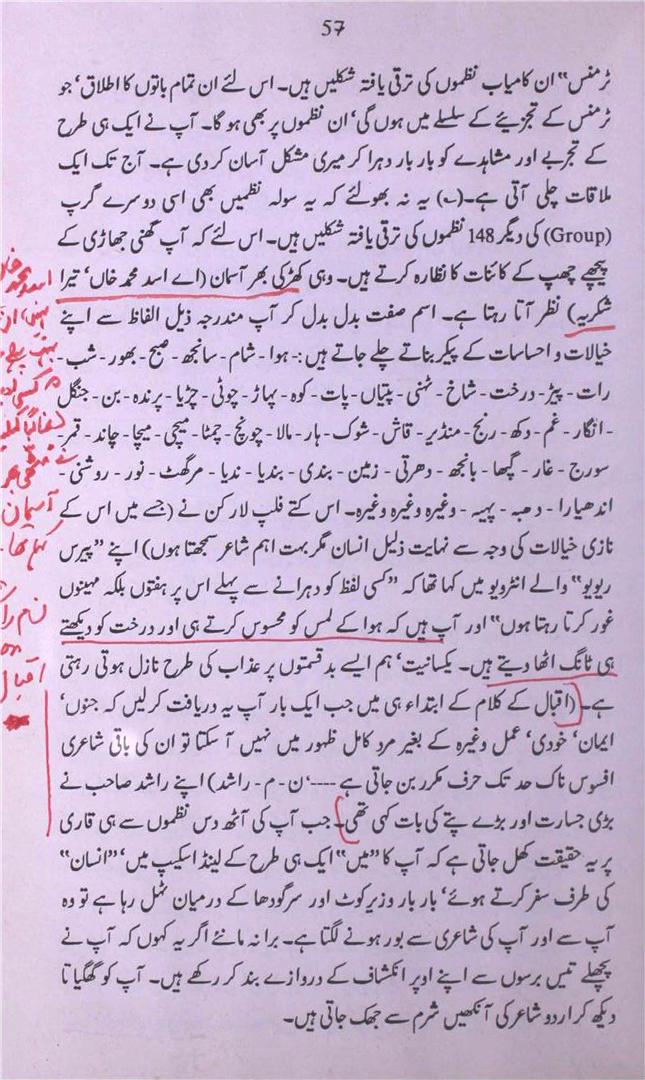 57
ٹرمنس‘‘ ان کامیاب نظموں کی ترقی یافتہ شکلیں ہیں۔ اس لئے ان تمام باتوں کا اطلاق‘ جو
ٹرمنس کے تجزیئے کے سلسلے میں ہوں گی‘ ان نظموں پر بھی ہو گا۔ آپ نے ایک ہی طرح
کے تجربے اور مشاہدے کو بار بار دہرا کر میری مشکل آسان کر دی ہے۔ آج تک ایک
ملاقات چلی آتی ہے۔ یہ نہ بھولئے کہ یہ سولہ نظمیں بھی اسی دوسرے گرپ
(Group) کی دیگر 148 نظموں کی ترقی یافتہ شکلیں ہیں۔ اس لئے کہ آپ گھنی جھاڑی کے
پیچھے چھپ کے کائنات کا نظارہ کرتے ہیں۔ وہی کھڑکی بھر آسمان (اے اسد محمد خاں‘ تیرا
شکریہ) نظر آتا رہتا ہے۔ اسم صفت بدل بدل کر آپ مندرجہ ذیل الفاظ سے اپنے
خیالات و احساسات کے پیکر بناتے چلے جاتے ہیں :- ہوا - شام - سانجھ - صبح - بھور - شب -
رات - پیڑ - درخت - شاخ - ٹہنی - پتیاں - پات - کوہ - پہاڑ - چوٹی - چڑیا - پرندہ - بن - جنگل
- انگار - غم - دکھ - رنج - منڈیر - قاش - شوک - ہار - مالا - چونچ - چمٹا - میچی - میچا - چاند - قمر -
سورج - غار - گپھا - بانجھ - دھرتی - زمین - بندی - بندیا - ندیا - مرگھٹ - نور - روشنی -
اندھیارا - دھبہ - پہیہ - وغیرہ وغیرہ وغیرہ۔ اس کتے فلپ لارکن نے (جسے میں اس کے
نازی خیالات کی وجہ سے نہایت ذلیل انسان مگر بہت اہم شاعر سمجھتا ہوں) اپنے ’’پیرس
ریویو‘‘ والے انٹرویو میں کہا تھا کہ ’’کسی لفظ کو دہرانے سے پہلے اس پر ہفتوں بلکہ مہینوں
غور کرتا رہتا ہوں‘‘ اور آپ ہیں کہ ہوا کے لمس کو محسوس کرتے ہی اور درخت کو دیکھتے
ہی ٹانگ اٹھا دیتے ہیں۔ یکسانیت‘ ہم ایسے بدقسمتوں پر عذاب کی طرح نازل ہوتی رہتی
ہے۔ (اقبال کے کلام کے ابتداء ہی میں جب ایک بار آپ یہ دریافت کر لیں کہ جنوں‘
ایمان‘ خودی‘ عمل وغیرہ کے بغیر مرد کامل ظہور میں نہیں آ سکتا تو ان کی باقی شاعری
افسوس ناک حد تک حرف مکرر بن جاتی ہے ----‘ ن - م - راشد) اپنے راشد صاحب نے
بڑی جسارت اور بڑے پتے کی بات کہی تھی۔ جب آپ کی آٹھ دس نظموں سے ہی قاری
پر یہ حقیقت کھل جاتی ہے کہ آپ کا ’’میں‘‘ ایک ہی طرح کے لینڈ اسکیپ میں‘ ’’انسان‘‘
کی طرف سفر کرتے ہوئے‘ بار بار وزیر کوٹ اور سرگودھا کے درمیان ٹہل رہا ہے تو وہ
آپ سے اور آپ کی شاعری سے بور ہونے لگتا ہے۔ برا نہ مانئے اگر یہ کہوں کہ آپ نے
پچھلے تیس برسوں سے اپنے اوپر انکشاف کے دروازے بند کر رکھے ہیں۔ آپ کو گھگیاتا
دیکھ کر اردو شاعر کی آنکھیں شرم سے جھک جاتی ہیں۔
آسمان
کہا تھا
اقبال